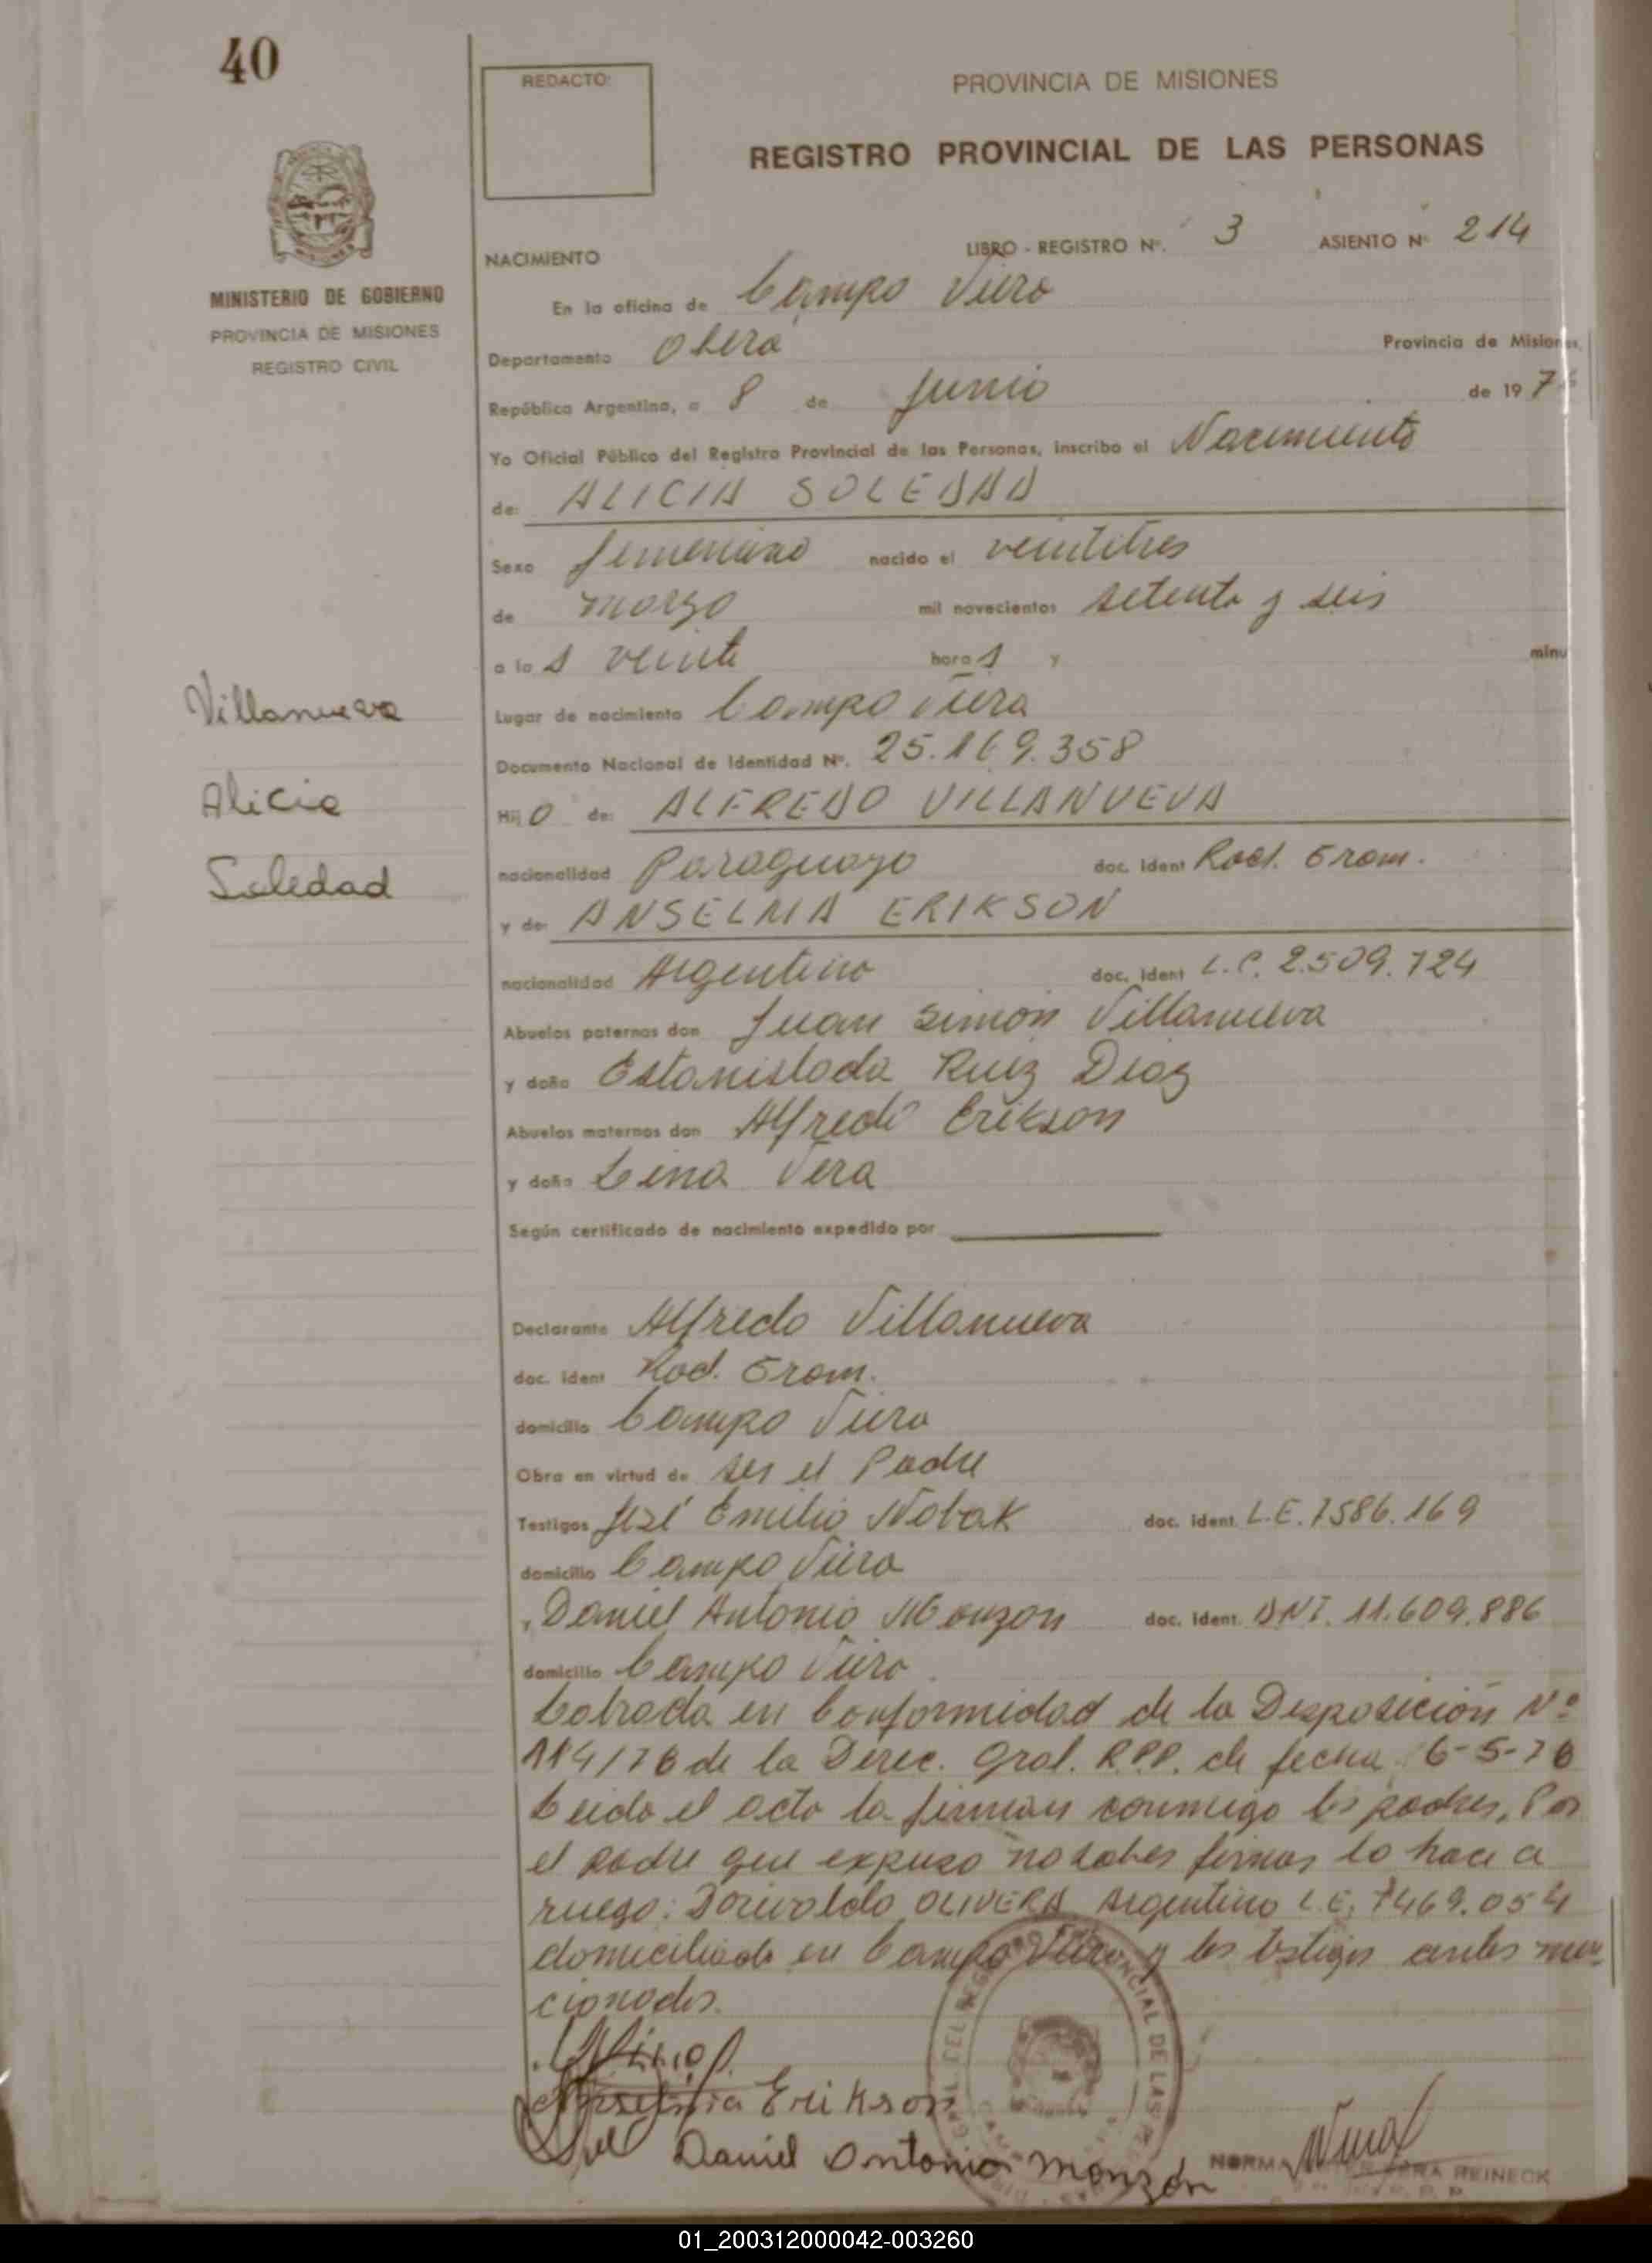 40
REDACTO:
PROVINCIA DE MISIONES
REGISTRO PROVINCIAL DE LAS PERSONAS
MINISTERIO DE GOBIERNO
PROVINCIA DE MISIONES
REGISTRO CIVIL
NACIMIENTO
LIBRO - REGISTRO Nº. 3 ASIENTO Nº 214
En la oficina de Campo Viera
Departamento Oberá Provincia de Misiones,
República Argentina, a 8 de Junio de 1976
Yo Oficial Público del Registro Provincial de las Personas, inscribo el Nacimiento
de: ALICIA SOLEDAD
Sexo femenino nacido el veintitres
de marzo mil novecientos setenta y seis
a las veinte horas y minu
Villanueva
Alicia
Soledad
Lugar de nacimiento Campo Viera
Documento Nacional de Identidad Nº. 25.169.358
Hijo de: ALFREDO VILLANUEVA
nacionalidad Paraguayo doc. ident
y de: ANSELMA ERIKSON
nacionalidad Argentina doc. ident L.C. 2.509.724
Abuelos paternos don Juan Simón Villanueva
y doña Estanislada Ruiz Diaz
Abuelos maternos don Alfredo Erikson
y doña Lina Vera
Según certificado de nacimiento expedido por
Declarante Alfredo Villanueva
doc. ident
domicilio Campo Viera
Obra en virtud de ser el Padre
Testigos José Emilio Nobak doc. ident. L.E. 7586.169
domicilio Campo Viera
y Daniel Antonio Monzon doc. ident. DNI. 11.609.886
domicilio Campo Viera
Labrada en Conformidad de la Disposición Nº
114/76 de la Direc. Gral. R.P.P. de fecha 6-5-76
Leida el acta la firman conmigo los padres, Por
el padre que expuso no saber firmar lo hace a
ruego: Dorivaldo OLIVERA Argentino L.E. 7469.054
domiciliado en Campo Viera y los testigos antes men
cionados.
Anselma Erikson
Daniel Antonio Monzón
NORMA REINECK
01_200312000042-003260